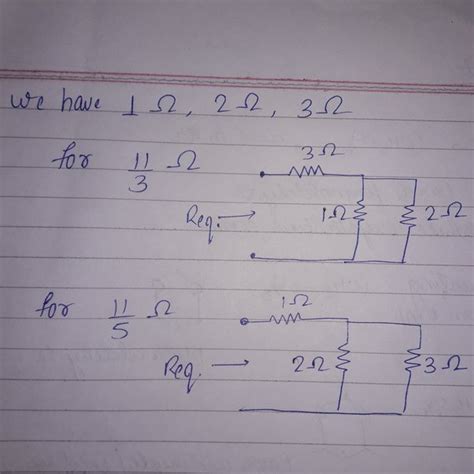 we have 1 Ω, 2 Ω, 3 Ω
for 11/3 Ω
3 Ω
Req. →
1Ω
2 Ω
for 11/5 Ω
1 Ω
Req. →
2 Ω
3 Ω